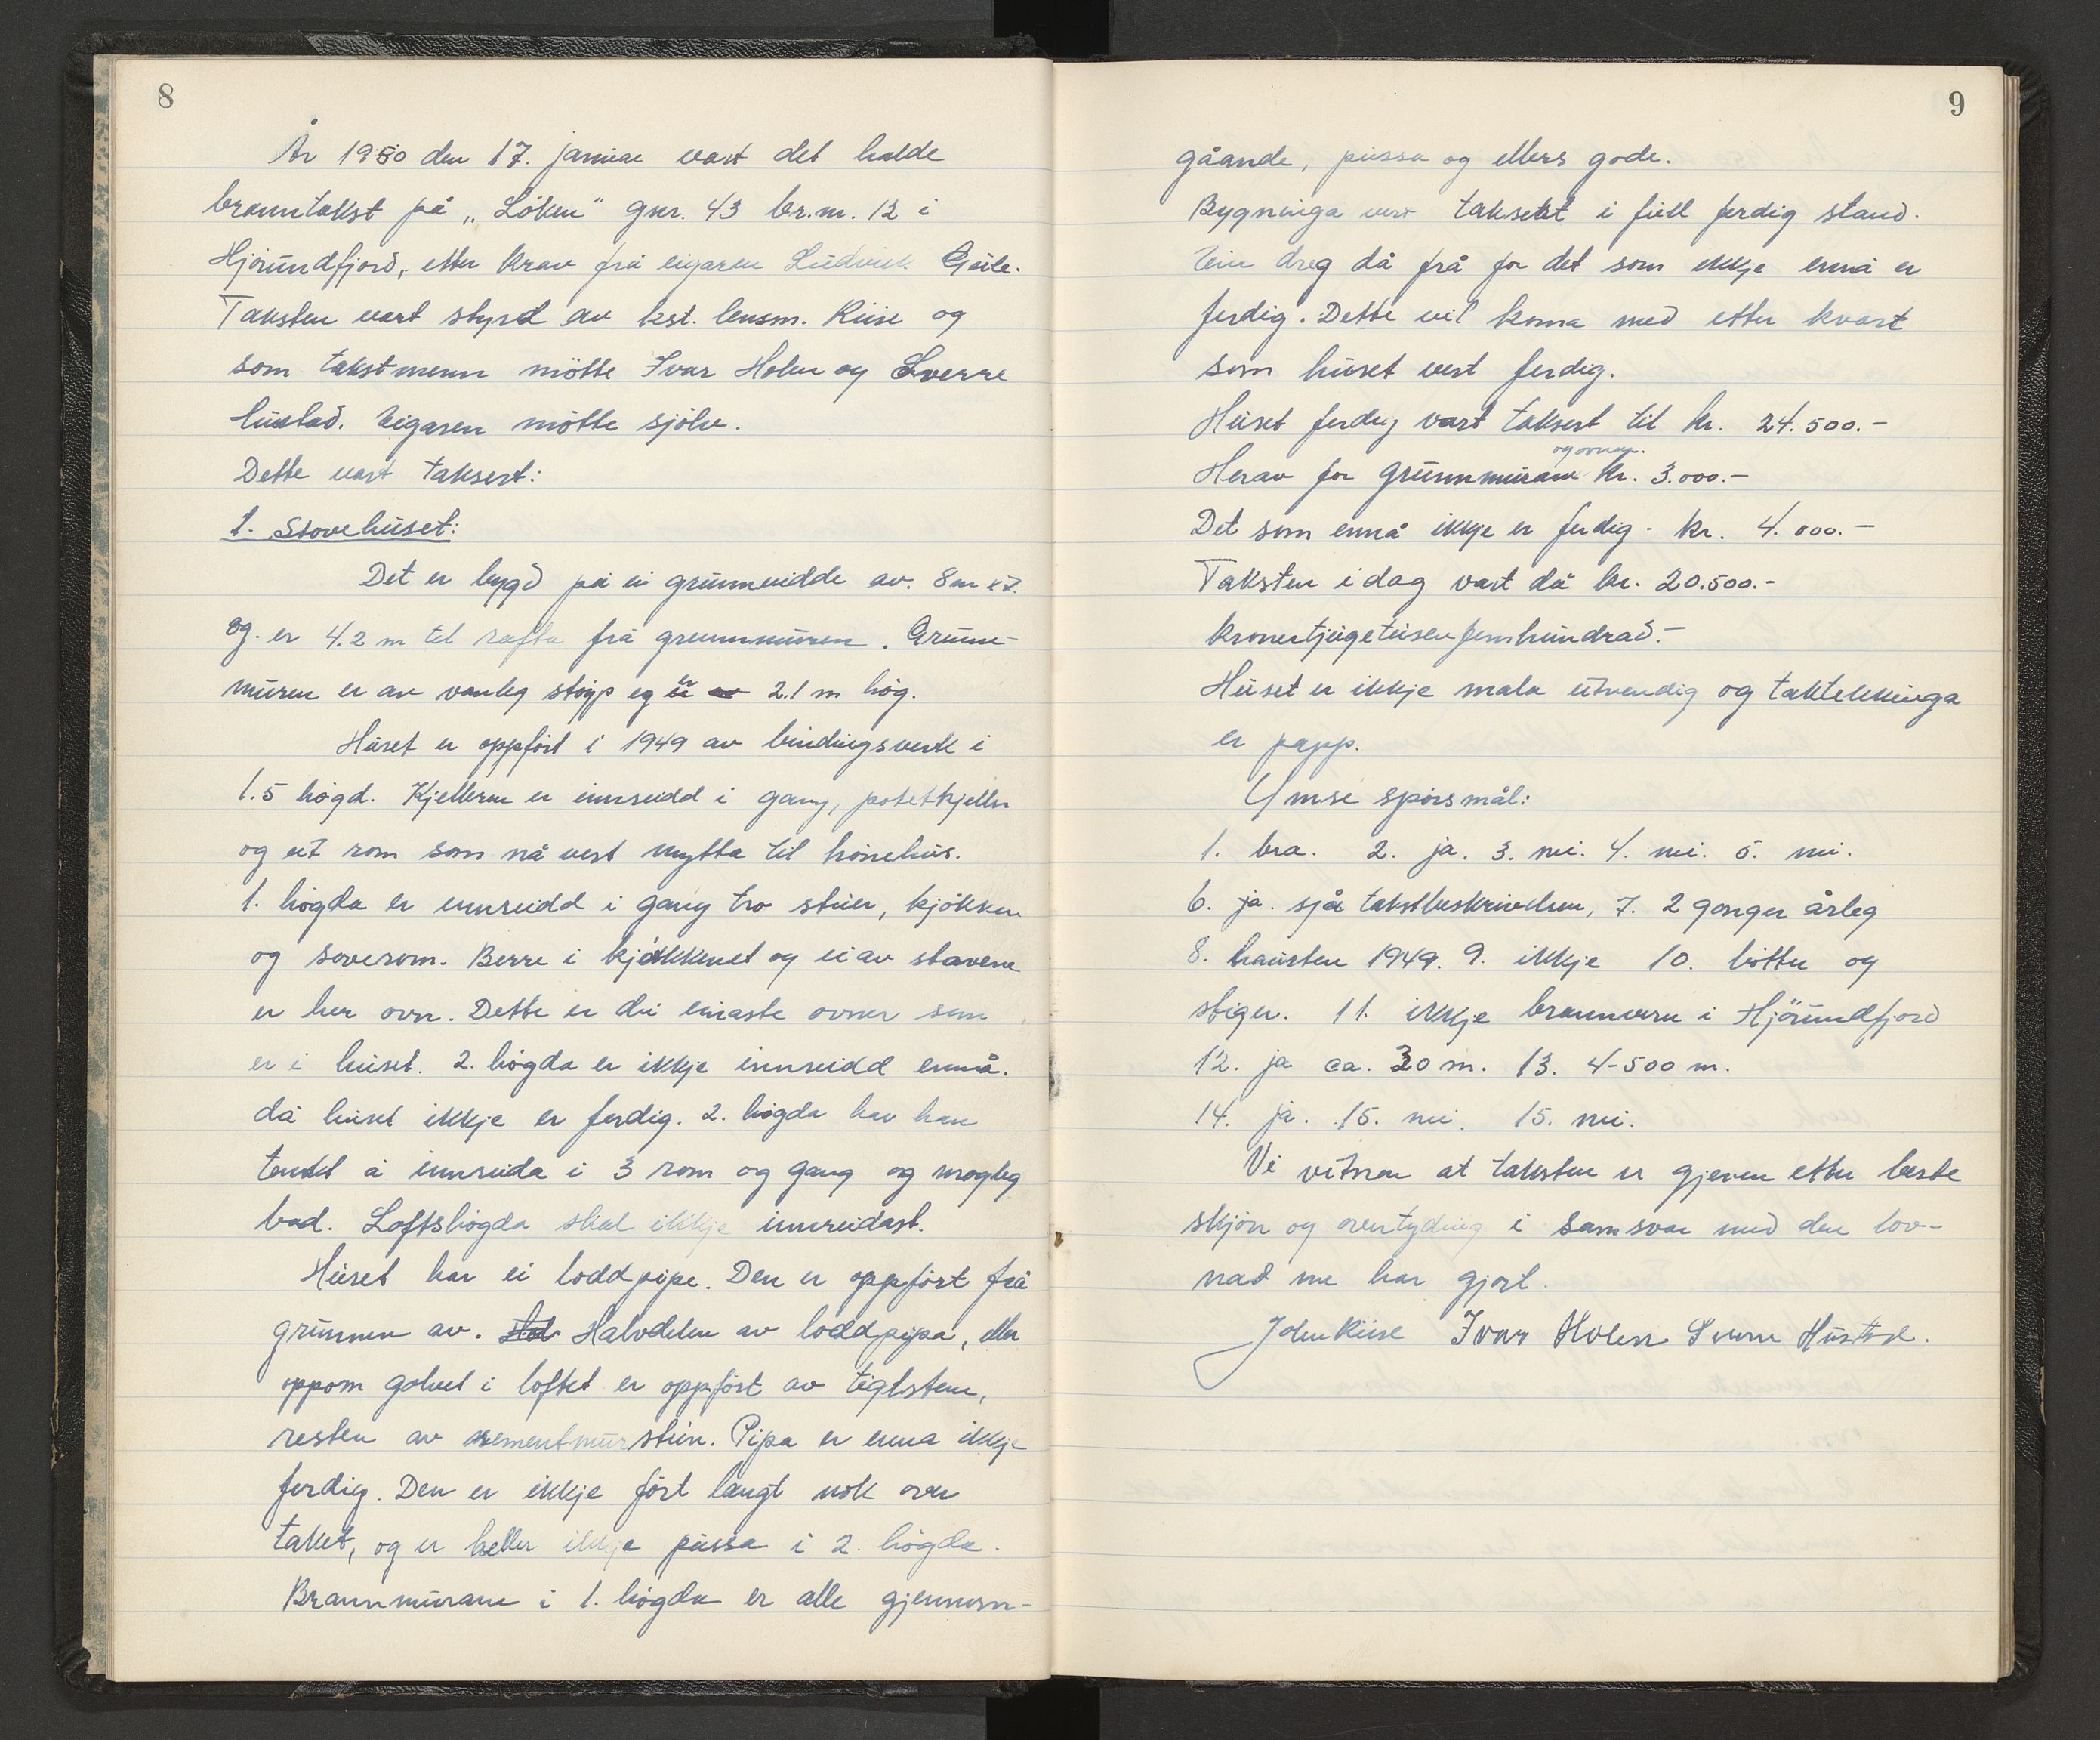 8
År 1950 den 17. januar vart det halde
branntakst på „Löken" gnr. 43 br.nr. 12 i
Hjørundfjord, etter krav frå eigaren Ludvik
Taksten vart styrd av kst. lensm. Riise og
som takstmenn mötte Ivar Holen og Sverre
Hustad. Eigaren mötte sjölv.
Dette vart taksert:
1. Stovehuset:
Det er bygd på ei grunnvidde av. 8m x 7.
og. er 4.2 m til rafta frå grunnmuren. Grunn-
muren er av vanleg støyp og er 2.1 m høg.
Huset er oppført i 1949 av bindingsverk i
1.5 høgd. Kjelleren er innreidd i gang, potetkjeller
og eit rom som nå vert nytta til hønehus.
1. høgda er innreidd i gang tvo stuer, kjökken
og soverom. Berre i kjøkkenet og ei av stovene
er her ovn. Dette er dei einaste ovner som
er i huset. 2. høgda er ikkje innreidd ennå.
då huset ikkje er ferdig. 2. høgda har han
tenkt å innreida i 3 rom og gang og mogleg
bad. Loftshøgda skal ikkje innreidast.
Huset har ei loddpipe. Den er oppført frå
grunnen av. Halvdelen av loddpipa, eller
oppom golvet i loftet er oppført av teglstein,
resten av sementmurstein. Pipa er enna ikkje
ferdig. Den er ikkje ført langt nok over
taket, og er heller ikkje pussa i 2. høgda.
Brannmurane i 1. høgda er alle gjennom-
9
gåande, pussa og ellers gode.
Bygninga vert taksert i full ferdig stand.
Ein dreg då frå for det som ikkje ennå er
ferdig. Dette vil koma med etter kvart
som huset vert ferdig.
Huset ferdig vart taksert til kr. 24.500.-
og ovner.
Herav for grunnmuren kr. 3.000.-
Det som ennå ikkje er ferdig - kr. 4.000.-
Taksten i dag vart då kr. 20.500.-
kronertjugetusenfemhundrad.-
Huset er ikkje mala utvendig og taktekkinga
er papp.
Ymse spørsmål:
1. bra. 2. ja. 3. nei. 4. nei. 5. nei.
6. ja. sjå takstbeskrivelsen, 7. 2 gonger årleg
8. hausten 1949. 9. ikkje 10. bøtter og
stiger. 11. ikkje brannvern i Hjörundfjord
12. ja ca. 30 m. 13. 4-500 m.
14. ja. 15. nei. 15. nei.
Vi vitnar at taksten er gjeven etter beste
skjøn og overtyding i samsvar med den lov-
nad me har gjort.
John Riise Ivar Holen Sverre Hustad.